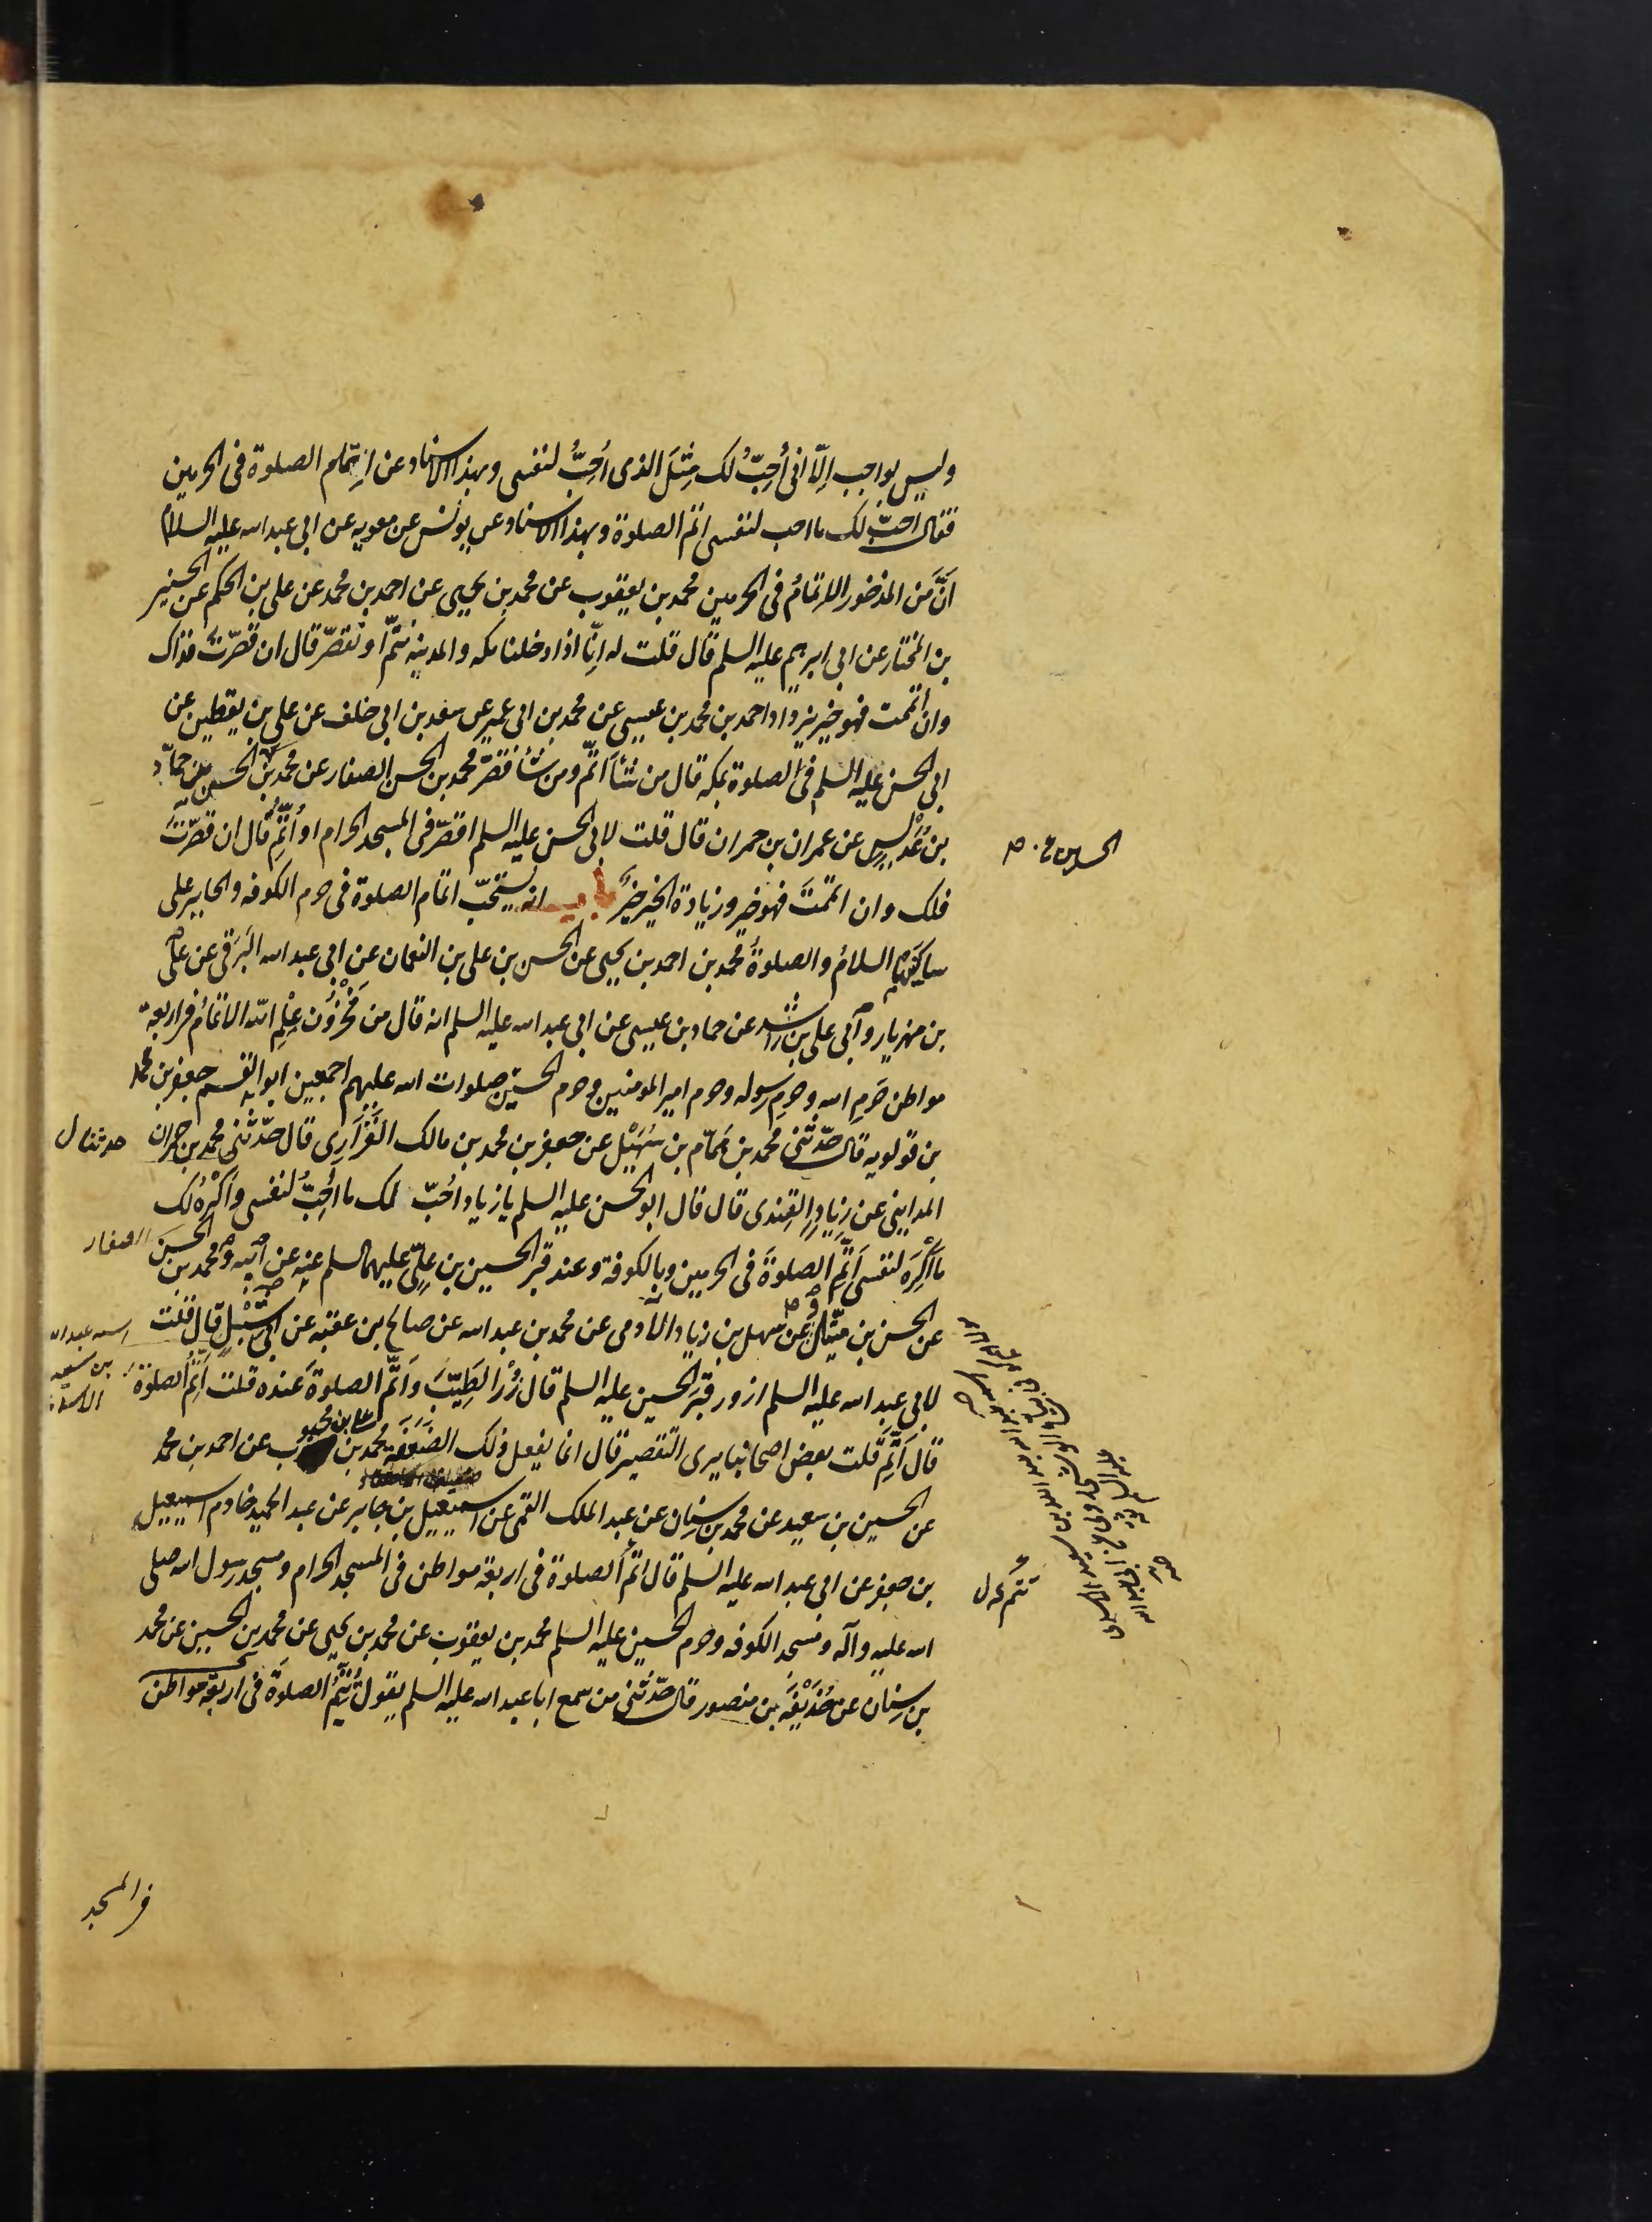 وليس بواجب إلّا انی أُحِبّ لک مِثلَ الذی أُحِبُّ لنفسی وبهذا الاسناد عن اِتمام الصلوة فی الحرمین
فقال احبّ لک ما احب لنفسی اتم الصلوة وبهذا الاسناد عن یونس عن معویه عن ابی عبدالله علیه السلام
انَّ مَن المذخور الاتمامُ فی الحرمین محمد بن یعقوب عن محمد بن یحیی عن احمد بن محمد عن علی بن الحکم عن الحسین
بن المختار عن ابی ابرهیم علیه السلم قال قلت له انّا اذا دخلنا مکه والمدینه نتمّ او نقصّر قال ان قصّرت فذاک
وان اتممت فهو خیر یزداد احمد بن محمد بن عیسی عن محمد بن ابی عمیر عن سعد بن ابی خلف عن علی بن یقطین عن
ابی الحسن علیه السلم فی الصلوة بمکه قال من شأ اتمّ ومن شأ قصّر محمد بن الحسن الصفار عن محمد بن الحسین عن حماد
بن عُدَیسٍ عن عمران بن حمران قال قلت لابی الحسن علیه السلم اقصّر فی المسجد الحرام او اُتِمُّ قال ان قصّرتَ
فلک وان اتممتَ فهو خیر وزیادة الخیر خیرٌ انه یستحبّ اتمام الصلوة فی حرم الکوفه والحایر علی
ساکنیهما السلامُ والصلوةُ محمد بن احمد بن یحیی عن الحسن بن علی بن النعمان عن ابی عبدالله البَرَقی عن علی
بن مهزیار وابی علی بن راشد عن حماد بن عیسی عن ابی عبدالله علیه السلم انه قال من مَخْزُونِ عِلْمِ الله الاتمامُ فی اربعة
مواطن حَرَمِ الله وحرمِ رسوله وحرم امیر المومنین وحرم الحسین صلوات الله علیهم اجمعین ابو القسم جعفر بن محمد
بن قولویه قال حدّثنی محمد بن هَمّام بن سُهَیْل عن جعفر بن محمد بن مالک الفَزارِی قال حدّثنی محمد بن حمران
المداینی عن زِیادٍ القندی قال قال ابوالحسن علیه السلم یا زیاد احُبّ لک ما اُحِبُّ لنفسی واَکْرَهُ لک
ما اَکْرَهُ لنفسی اَتِمِّ الصلوةَ فی الحرمین وبالکوفة وعند قبر الحسین بن علیّ علیهما السلم عنه عن ابیه ومحمد بن الحسن
عن الحسن بن متّیل عن سهل بن زیاد الآدمی عن محمد بن عبدالله عن صالح بن عقبه عن ابی شِبْلٍ قال قلت
لابی عبدالله علیه السلم ازور قبرَ الحسین علیه السلم قال زُرْ الطیّبَ واَتمَّ الصلوة عنده قلت اُتمّ الصلوة
قال اَتِمَّ قلت بعض اصحابنا یری التقصیر قال انما یفعل ذلک الضَعَفَه محمد بن علی بن محبوب عن احمد بن محمد
عن الحسین بن سعید عن محمد بن سِنان عن عبد الملک القمی عن اسمعیل بن جابر عن عبد الحمید خادم اسمعیل
بن جعفر عن ابی عبدالله علیه السلم قال اتم الصلوة فی اربعة مواطن فی المسجد الحرام ومسجد رسول الله صلی
الله علیه وآله ومسجد الکوفه وحرم الحسین علیه السلم محمد بن یعقوب عن محمد بن یحیی عن محمد بن الحسین عن محمد
بن سِنان عن حُذَیْفَه بن منصور قال حدّثنی من سمع ابا عبدالله علیه السلم یقول تُتِمُّ الصلوةَ فی اربعة مواطن
حدثنا ل
الصفار
اسمه عبدالله
بن سعید
تتم ل
فی المسجد